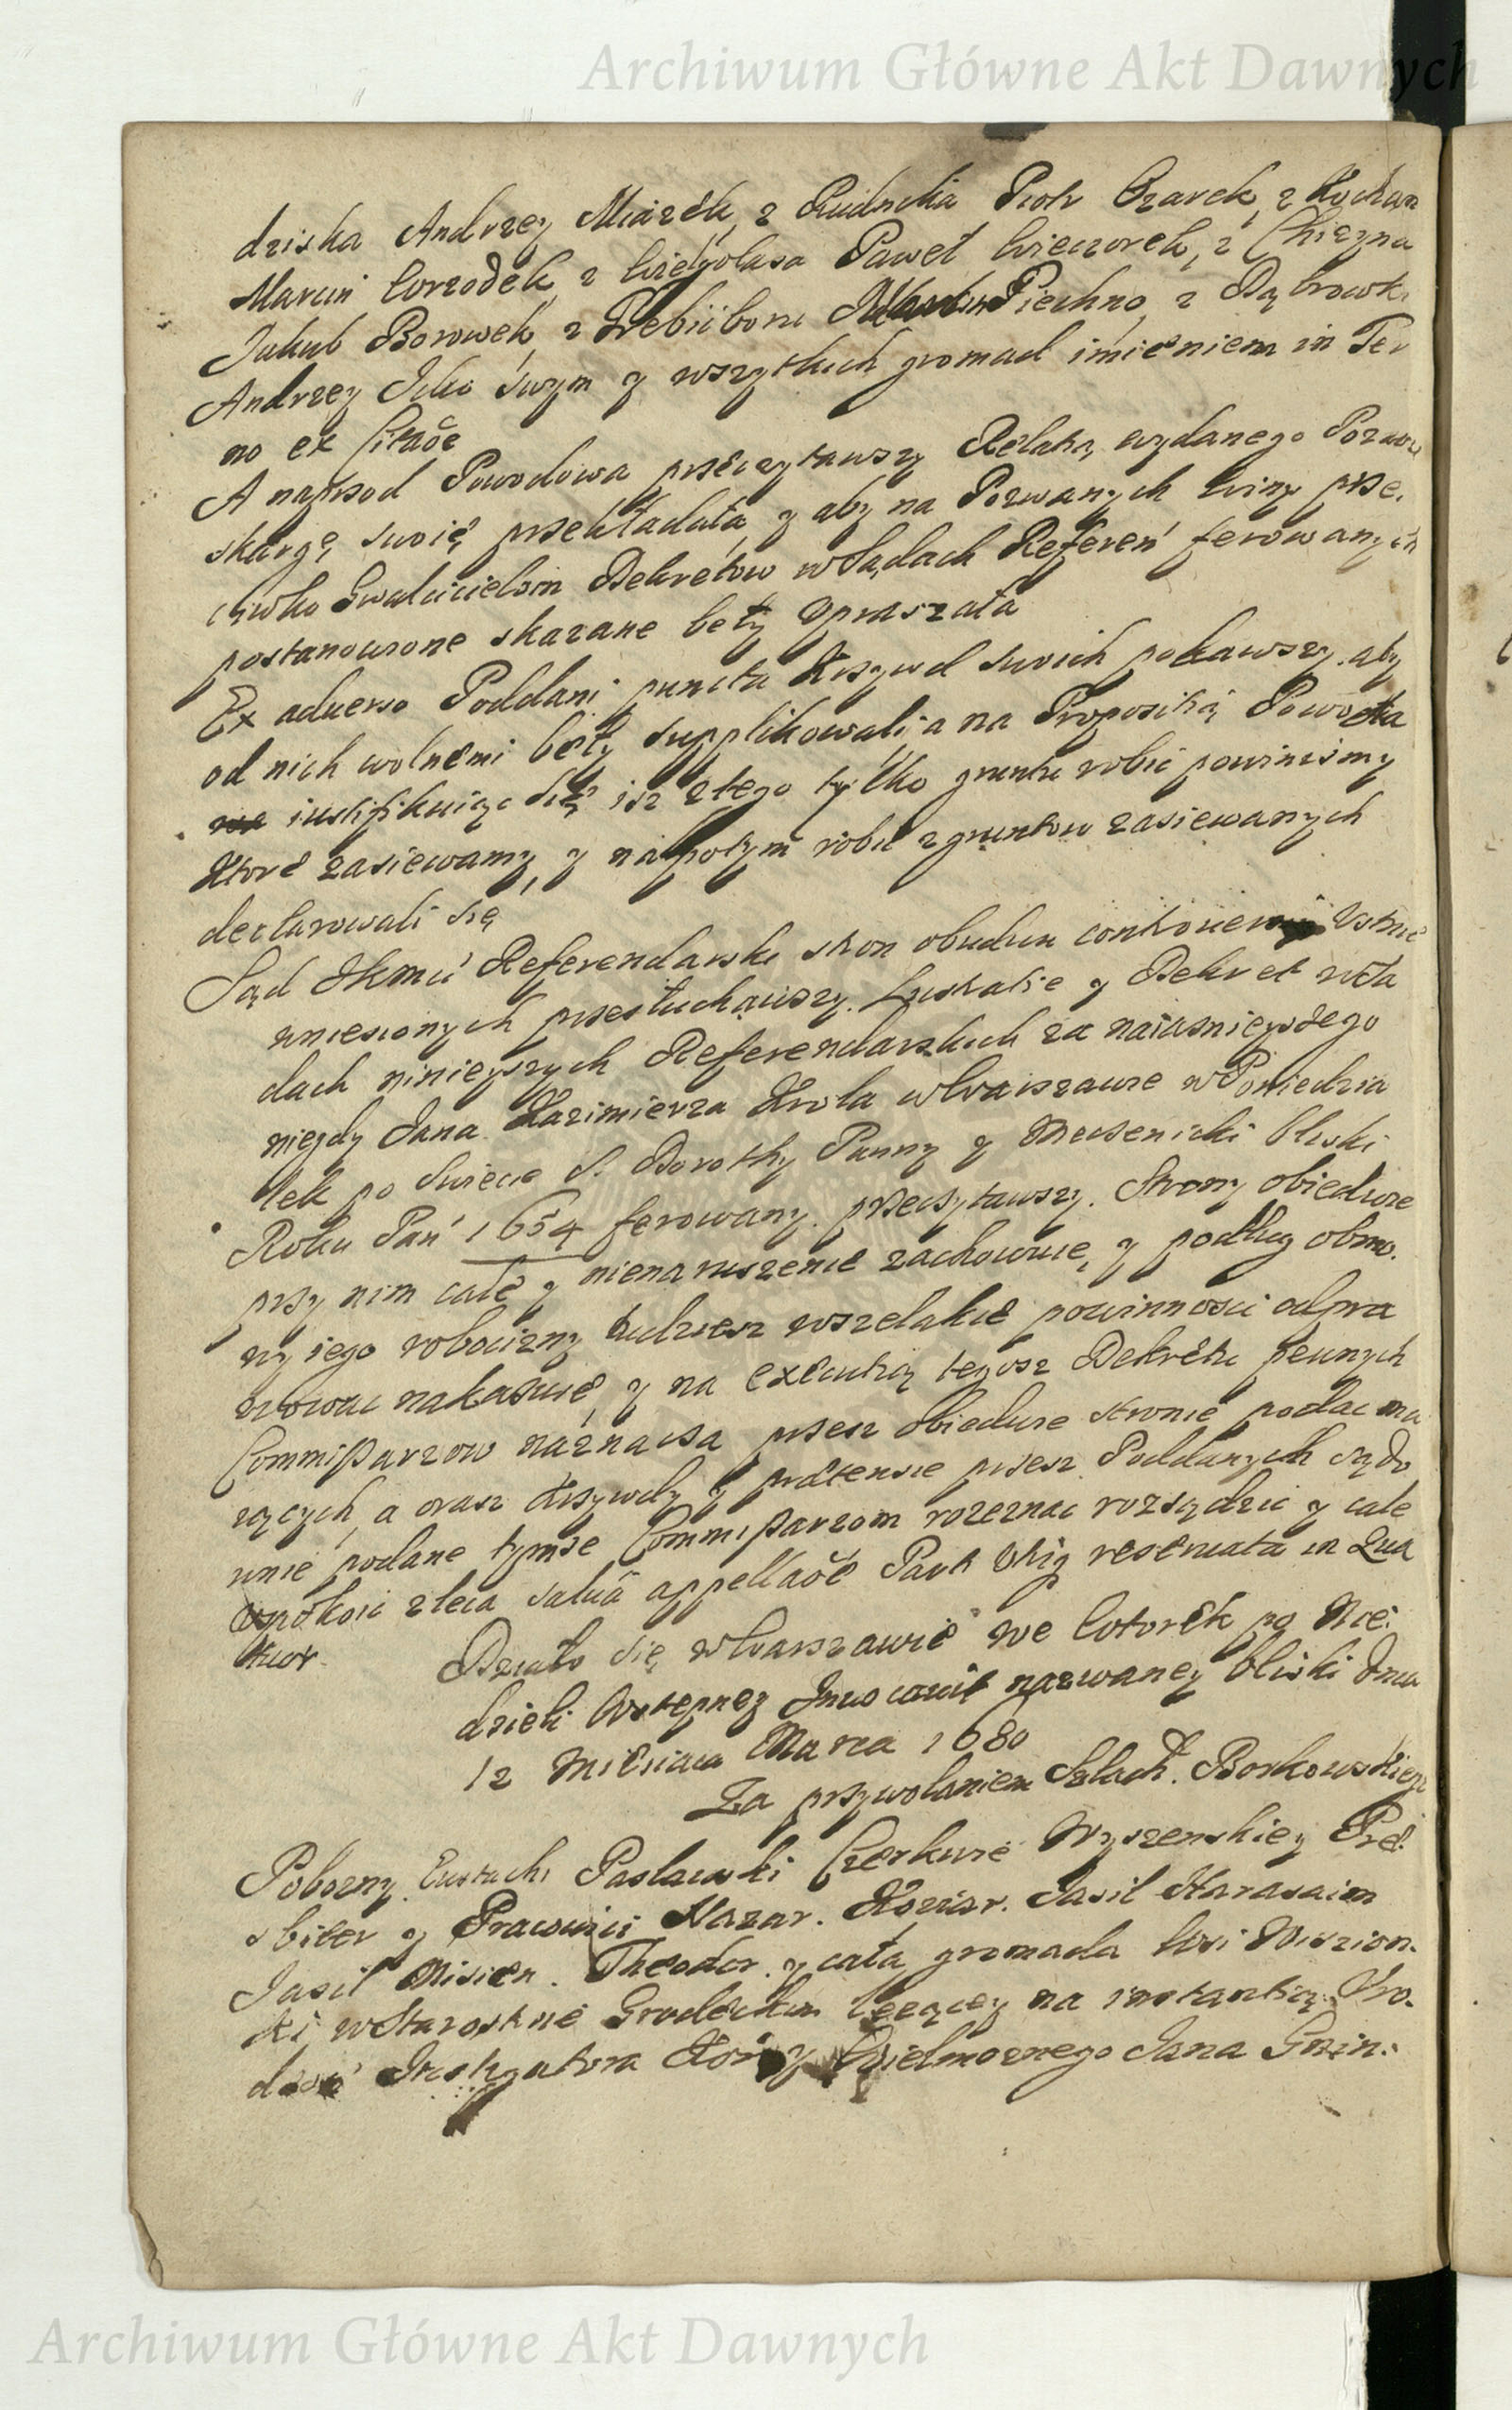 Archiwum Główne Akt Dawnych
dziska Andrzey Miązek, z Rudnika Piotr Czarek, z Kochan
Marcin Wrzodek, z Wielgolasa Paweł Wieczorek, z Chyzyna
Jakub Borowek, z Piechno, z Dąbrowki
Andrzey swym y wszytkich gromad imięniem in Ter
no ex Citaoe
A naprzod Powodowa przeczytawszy Relatią wydanego Pozwu
skargę swoię przekładała, y aby na Pozwanych winy prze.
ciwko Gwałcicielom Dekretow w Sądach Referen ferowanych
postanowione skazane beły upraszała
Ex aduerso Poddani puncta Krzywd swoich pokawszy aby
od nich wolnemi beły supplikowali, a na Propositią Powodta
iustifikuiąc się isz z tego tylko gruntu robic powinismy
Ktore zasiewamy, y na potym robic z gruntow zasiewanych
declarowali się
Sąd JKmci Referendarski stron obudwu Ustnie
wniesionych przesłuchawszy. Lustratie y Dekret w Sa
dach ninieyszych Referendarskich za naiasnieyszego
niegdy Jana Kazimierza Krola w Warszawie w Poniedzia
łek po Swiecie S. Dorothy Panny y Meczenicki bliski
Roku Pań 1654 ferowany. przeczytawszy. Strony obiedwie
przy nim cale y nienaruszenie zachowuie, y podług obmo.
wy iego robocizny tudziesz wszelakie powinnosci odpra
wowac nakazuie, y na executią tegosz Dekretu pewnych
Commissarzow náznacza przez obiedwie stronie podac ma
iących, a orasz krzywdy y prætensie przesz Poddanych sądo
wnie podane tymze Commissarzom rozeznac rozsądzic y cale
uspokoic zleca saluâ appellaõe Part Vtriq reseruata in Qua
tuor
Działo się w Warszawie we Wtorek po Nie.
dzieli Wstępney Inuocauit nazwaney bliski dnia
12 Miesiaca Marca 1680
Za przywołaniem Szlach. Borkowskiego
Pobozny Eustachi Pasławski Cerkwie Wyszenskiey Pre.
sbiter y Pracowici Nazar. Koziar. Jasil Harasaim
Jasil Misien. Theodor. y cała gromada Wsi Wiszion.
ki w Starostwie Grodeckim lezącey na instantią Uro.
Instigatora Kor y Wielmoznego Jana Gnin.
Archiwum Główne Akt Dawnych